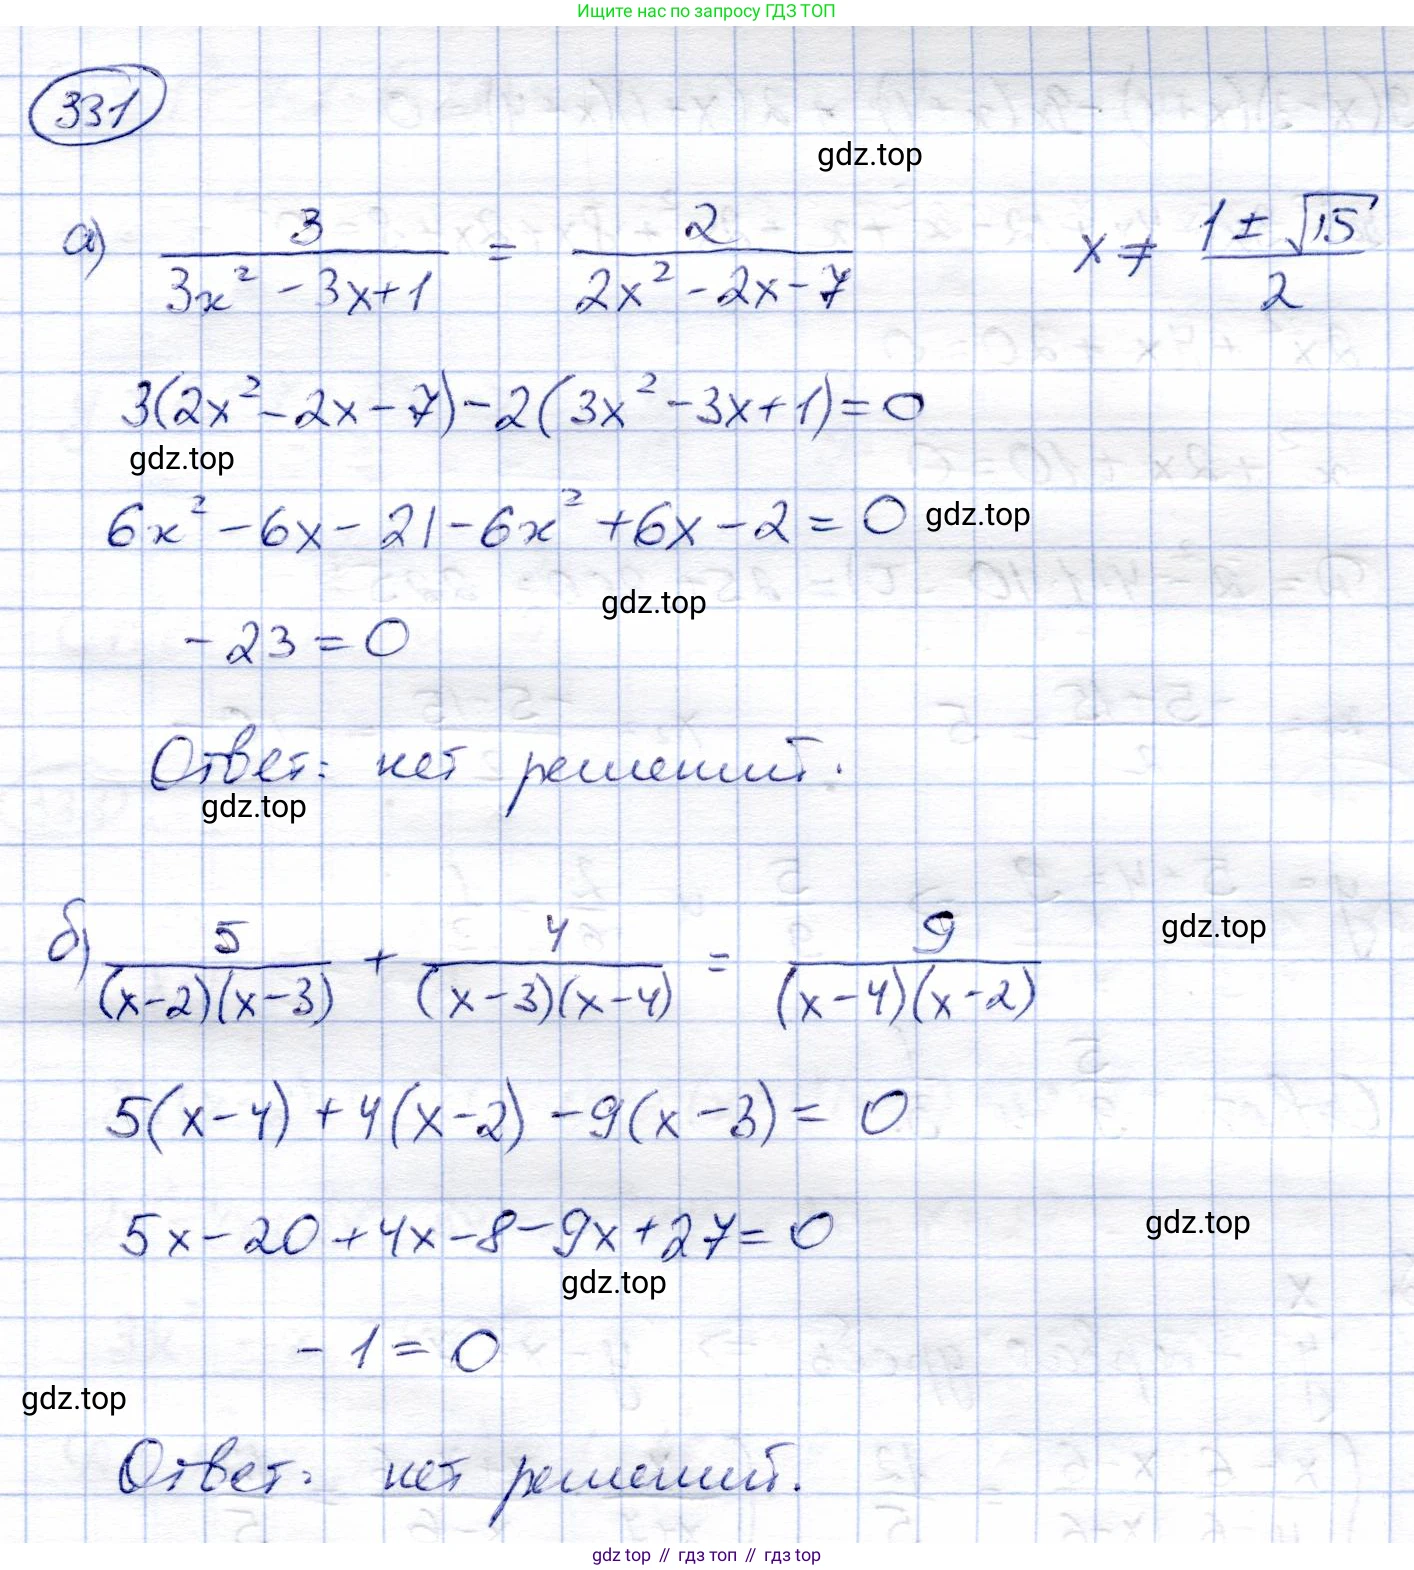 Ищите нас по запросу ГДЗ ТОП
331
gdz.top
а) 3/(3x² - 3x + 1) = 2/(2x² - 2x - 7)    x ≠ (1 ± √15)/2
3(2x² - 2x - 7) - 2(3x² - 3x + 1) = 0
gdz.top
6x² - 6x - 21 - 6x² + 6x - 2 = 0 gdz.top
gdz.top
- 23 = 0
Ответ: нет решений.
gdz.top
б) 5/((x-2)(x-3)) + 4/((x-3)(x-4)) = 9/((x-4)(x-2)) gdz.top
5(x-4) + 4(x-2) - 9(x-3) = 0
5x - 20 + 4x - 8 - 9x + 27 = 0 gdz.top
gdz.top
- 1 = 0
gdz.top
Ответ: нет решений.
gdz top // гдз топ // гдз top